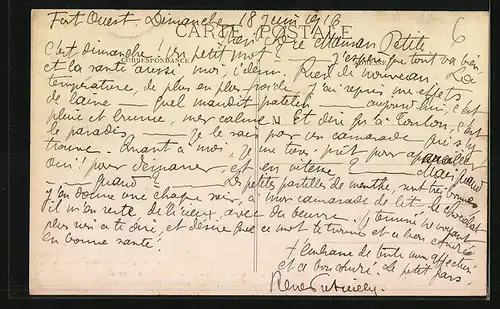 Fort Ouest. Dimanche 18 Juin 1916
6
CARTE POSTALE
CORRESPONDANCE
Maman Petite
C'est dimanche ! Un petit mot ? J'espère que tout va bien
et la santé aussi, moi, idem. Rien de nouveau. La
température, de plus en plus froide, j'ai repris mes effets
de laine. Quel maudit patelin aujourd'hui, c'est
pluie et brume, mer calme. Et dire que Toulon, c'est
le paradis. Je le sais par un camarade qui s'y
trouve. Quant à moi, je me tiens prêt pour
oui ! pour démarrer, et en vitesse ? Mais quand
quand Les petites pastilles de menthe, sont très bonnes
j'en donne une chaque soir, à mon camarade de lit. le chocolat
il m'en reste de l'autre, avec du beurre.
plus rien à te dire, et désire que ce mot te trouve et a bon
en bonne santé.
t'embrasse de toute mon affection
et a bon Le petit gars.
René